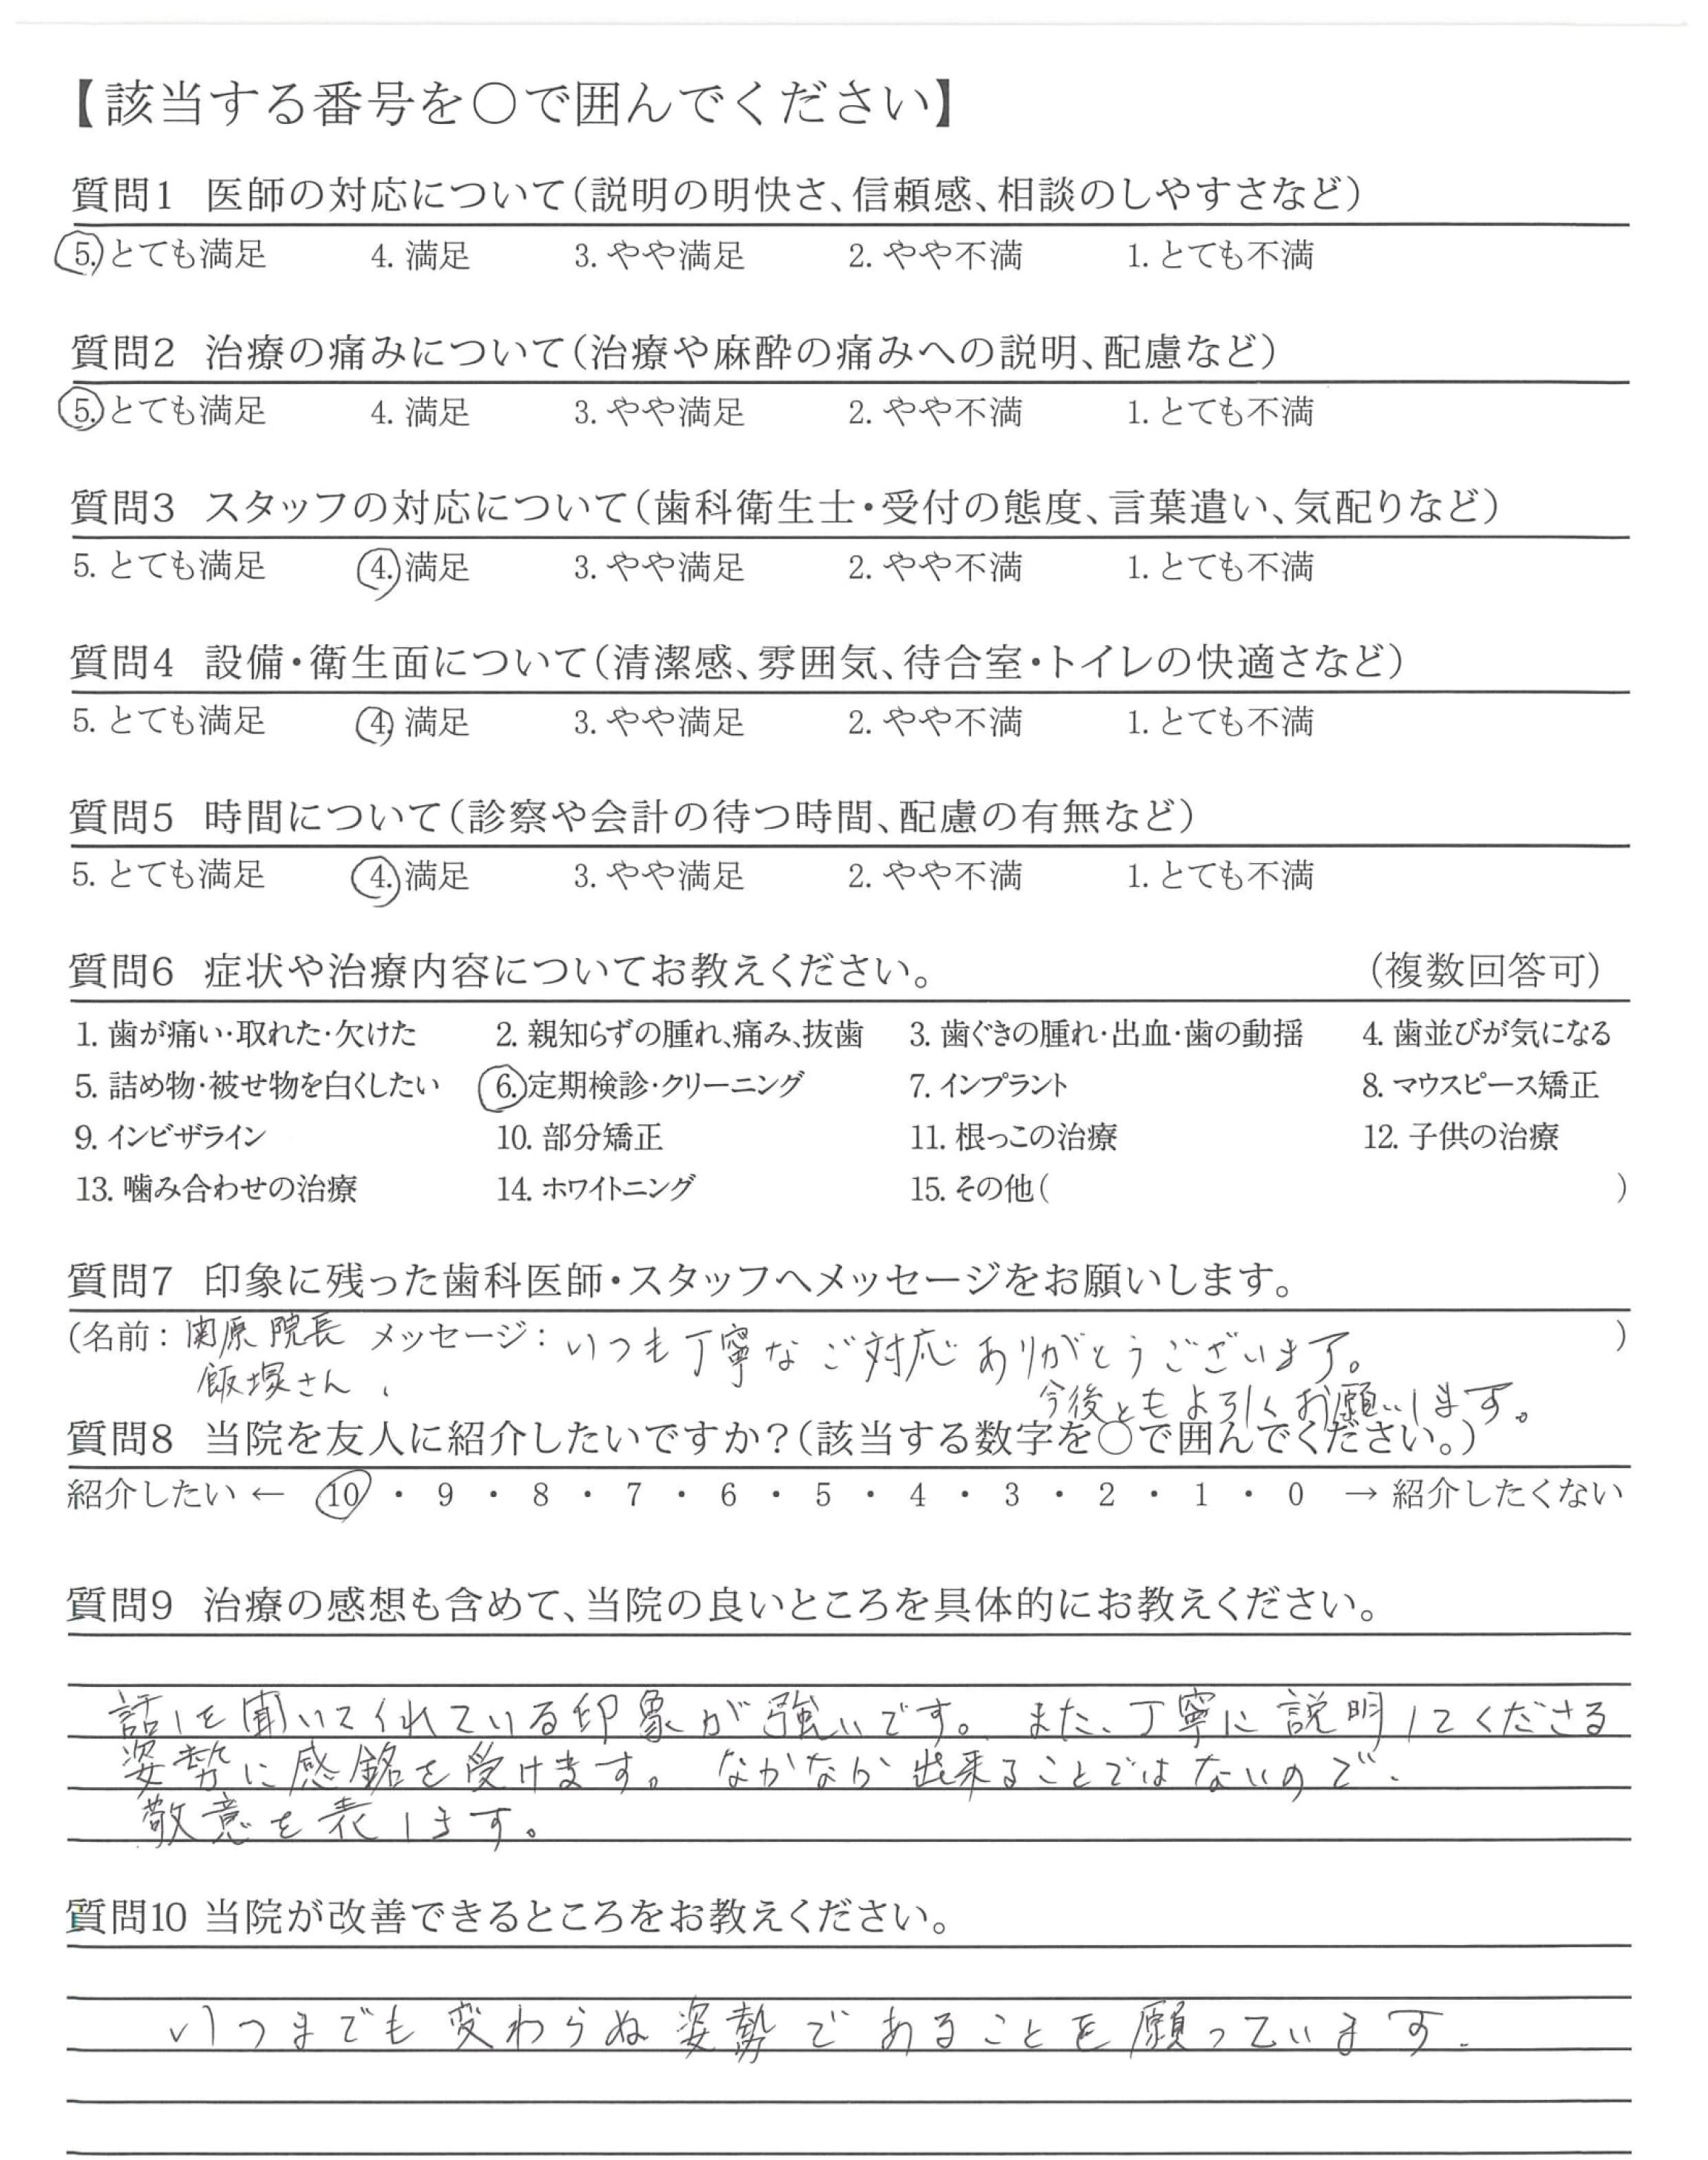 【該当する番号を〇で囲んでください】
質問1 医師の対応について(説明の明快さ、信頼感、相談のしやすさなど)
5. とても満足 4. 満足 3. やや満足 2. やや不満 1. とても不満
質問2 治療の痛みについて(治療や麻酔の痛みへの説明、配慮など)
5. とても満足 4. 満足 3. やや満足 2. やや不満 1. とても不満
質問3 スタッフの対応について(歯科衛生士・受付の態度、言葉遣い、気配りなど)
5. とても満足 4. 満足 3. やや満足 2. やや不満 1. とても不満
質問4 設備・衛生面について(清潔感、雰囲気、待合室・トイレの快適さなど)
5. とても満足 4. 満足 3. やや満足 2. やや不満 1. とても不満
質問5 時間について(診察や会計の待つ時間、配慮の有無など)
5. とても満足 4. 満足 3. やや満足 2. やや不満 1. とても不満
質問6 症状や治療内容についてお教えください。 (複数回答可)
1. 歯が痛い・取れた・欠けた 2. 親知らずの腫れ、痛み、抜歯 3. 歯ぐきの腫れ・出血・歯の動揺 4. 歯並びが気になる
5. 詰め物・被せ物を白くしたい 6. 定期検診・クリーニング 7. インプラント 8. マウスピース矯正
9. インビザライン 10. 部分矯正 11. 根っこの治療 12. 子供の治療
13. 噛み合わせの治療 14. ホワイトニング 15. その他( )
質問7 印象に残った歯科医師・スタッフへメッセージをお願いします。
(名前: 関原院長 メッセージ: いつも丁寧なご対応ありがとうございます。 )
飯塚さん、 今後ともよろしくお願いします。
質問8 当院を友人に紹介したいですか?(該当する数字を〇で囲んでください。)
紹介したい ← 10 ・ 9 ・ 8 ・ 7 ・ 6 ・ 5 ・ 4 ・ 3 ・ 2 ・ 1 ・ 0 → 紹介したくない
質問9 治療の感想も含めて、当院の良いところを具体的にお教えください。
話しを聞いてくれている印象が強いです。また、丁寧に説明してくださる
姿勢に感銘を受けます。なかなか出来ることではないので、
敬意を表します。
質問10 当院が改善できるところをお教えください。
いつまでも変わらぬ姿勢であることを願っています.